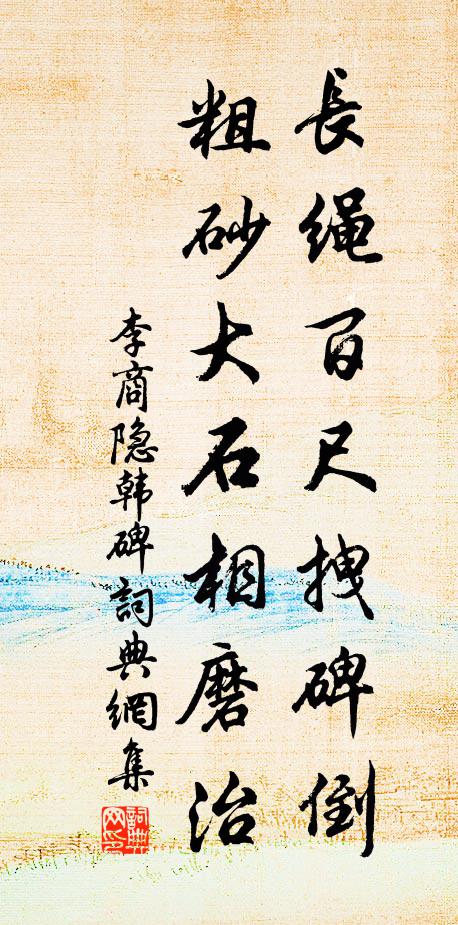 長绳百尺拽碑倒
粗砂大石相磨治
李商隐韩碑詞典網集